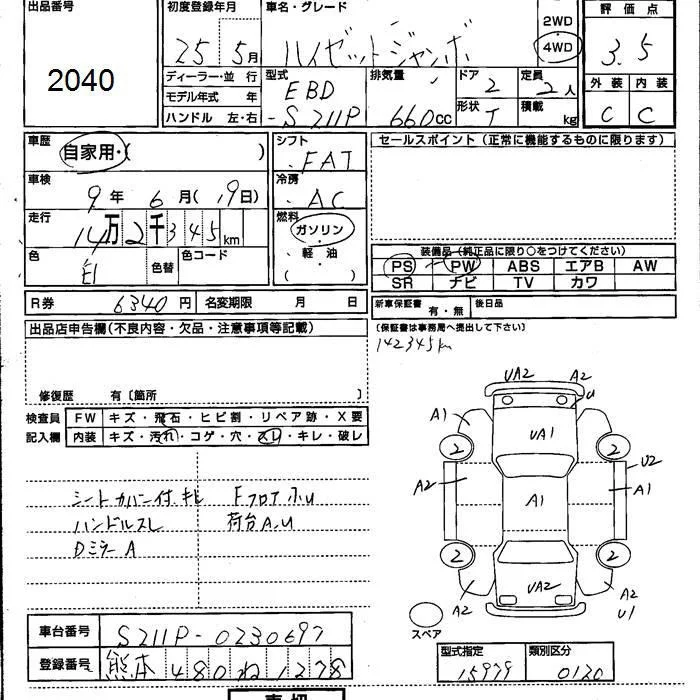 出品番号
2040
初度登録年月
25 5月
車名・グレード
ハイゼットジャンボ
2WD
4WD
評価点
3.5
外装 内装
C C
ディーラー・並行
モデル年式 年
ハンドル 左・右
型式
EBD
-S211P
排気量
660cc
ドア
2
形状
T
定員
2人
積載
kg
車歴
自家用・( )
シフト
FAT
セールスポイント(正常に機能するものに限ります)
車検
9年 6月(19日)
冷房
AC
走行
14万2千345km
燃料
ガソリン
・軽油
( )
色
色替
色コード
装備品(純正品に限り○をつけてください)
PS PW ABS エアB AW
SR ナビ TV カワ
R券 6340円
名変期限 月 日
新車保証書 有・無
後日品
(保証書は事務局へ提出して下さい)
142345km
出品店申告欄(不良内容・欠品・注意事項等記載)
修復歴 有〔箇所 〕
検査員
記入欄
FW キズ・飛石・ヒビ割・リペア跡・X要
内装 キズ・汚れ・コゲ・穴・スレ・キレ・破レ
シートカバー付.キレ
ハンドルスレ
Dミラー A
Fフロア小U
荷台A.U
UA2 A2
U
A1
UA1
2
2
A2
A1
U2
A1
2
2
A2
UA2
A2
U1
スペア
車台番号 S211P-0230697
登録番号 熊本 480 ね 1278
型式指定
15979
類別区分
0120